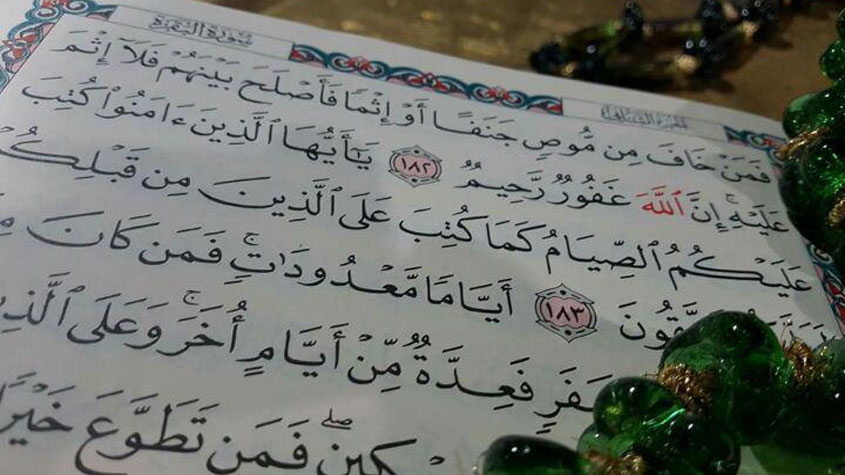 سُورَةُ البَقَرَةِ
فَمَنْ خَافَ مِن مُّوصٍ جَنَفًا أَوْ إِثْمًا فَأَصْلَحَ بَيْنَهُمْ فَلَآ إِثْمَ
عَلَيْهِ ۚ إِنَّ ٱللَّهَ غَفُورٌ رَّحِيمٌ ١٨٢ يَٰٓأَيُّهَا ٱلَّذِينَ ءَامَنُوا۟ كُتِبَ
عَلَيْكُمُ ٱلصِّيَامُ كَمَا كُتِبَ عَلَى ٱلَّذِينَ مِن قَبْلِكُ
١٨٣ أَيَّامًا مَّعْدُودَٰتٍ ۚ فَمَن كَانَ
فَعِدَّةٌ مِّنْ أَيَّامٍ أُخَرَ ۚ وَعَلَى ٱلَّذِ
فَمَن تَطَوَّعَ خَيْرًا